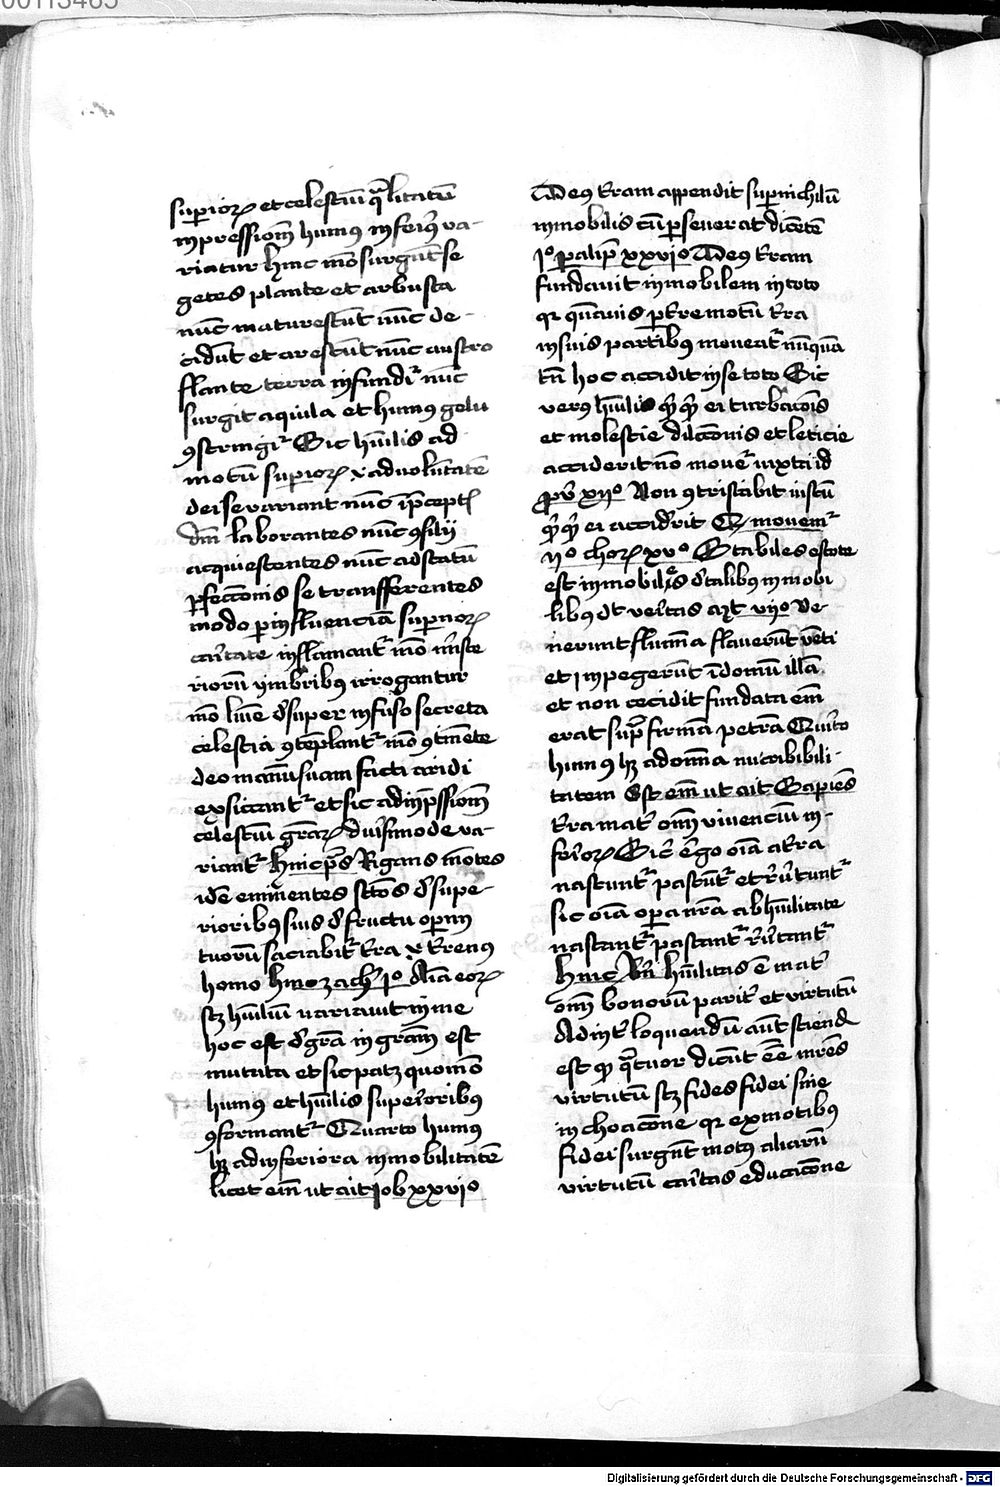 00113465
superiorum et celestium qualitatum
inpressionem humus inferius va-
riatur hinc modo surgunt se
getes plante et arbusta
nunc maturescunt nunc de-
cidunt et arescunt nunc austro
flante terra infunditur nunc
surgit aquila et humus gelu
constringitur Sic humilis ad
motum superiorum et ad voluntatem
dei se variant nunc in preceptis
domini laborantes nunc consilii
acquiescentes nunc ad statum
perfeccionis se transfferentes
modo per influenciam supernorum
caritate inflamantur modo miste
riorum ymbribus irrogantur
modo lumine desuper infuso secreta
celestia contemplantur modo
deo manum suam facti aridi
exsiccantur et sic ad inpressionem
celestium graciarum diversimode va-
riantur Hinc ps Rigans montes
id est eminentes sanctos de supe-
rioribus suis de fructu operum
tuorum saciabitur terra et terrenus
homo Hinc zach io Anima eorum
scilicet humilium variavit in me
hoc est de gracia in graciam est
mutata et sic patet quomodo
humus et humilis superioribus
conformantur Quarto humus
habet ad inferiora inmobilitatem
licet enim ut ait Job xxvio
Deus terram appendit super nichilum
inmobilis tamen perseverat dicente
io palip xxvio Deus terram
fundavit inmobilem in toto
quia quamvis per terre motum terra
in suis partibus moveatur nunquam
tamen hoc accidit in se toto Sic
verus humilis quicquid ei turbacionis
et molestie dileccionis et leticie
acciderit non movetur iuxta id
prov xiio Non contristabit iustum
quicquid ei acciderit Et movemur
iio chorum xvo Stabiles estote
est inmobiles de talibus inmobi
libus dicit veritas mat viio Ve-
nerunt flumina flaverunt venti
et inpegerunt in domum illam
et non cecidit fundata enim
erat supra firmam petram Quinto
humus habet ad omnia nutribibili-
tatem Est enim ut ait Sapiens
terra mater omnium vivencium in-
feriorum Sicut ergo omnia a terra
nascuntur pascuntur et revertuntur
sic omnia opera nostra ab humilitate
nascantur pascantur revertantur
Hinc bern humilitas est mater
omnium bonorum pariter et virtutum
Ad inter loquendum autem sciendum
est quod quatuor dicuntur esse matres
virtutum scilicet fides fidei sine
inchoacione quia ex motibus
fidei surgunt motus aliarum
virtutum caritas educacione
Digitalisierung gefördert durch die Deutsche Forschungsgemeinschaft - DFG